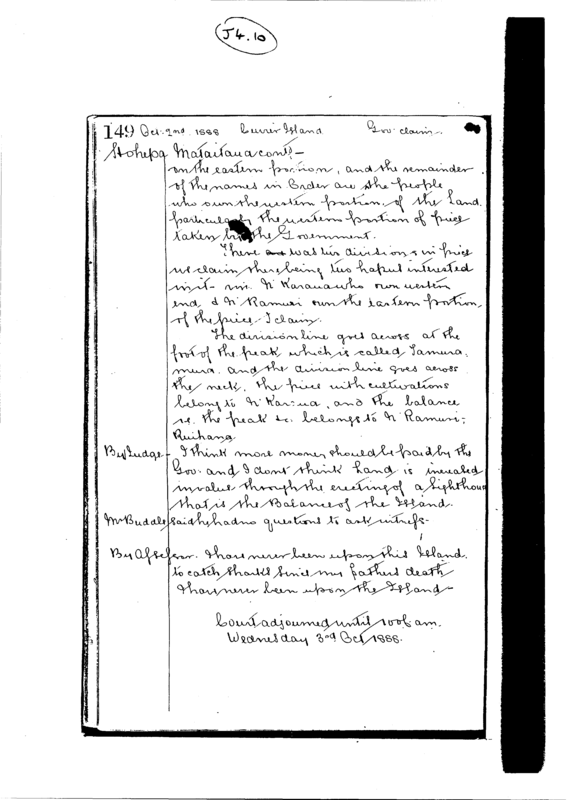 J4.10
149 Oct. 2nd 1888 Cuvier Island Gov. claim.
Hohepa Mataitaua contd -
on the eastern portion, and the remainder
of the names in Order are the people
who own the western portion of the Land.
particularly the western portion of piece
taken by the Government.
There was two divisions in piece
we claim, there being two hapus interested
in it - N' Karaua who own western
end & N' Ramuri own the eastern portion,
of the piece I claim.
The division line goes across at the
foot of the peak which is called Tamura,
mura. and the division line goes across
the neck, the piece with cultivations
belong to N' Karaua, and the balance
i.e. the peak &c. belongs to N' Ramuri;
Ruihana
By Judge - I think more money should be paid by the
Gov. and I dont think Land is increased
in value through the erecting of a lighthouse
that is the Balance of the Island.
Mr Buddle said he had no questions to ask witness -
By Assessor. I have never been upon this Island.
to catch sharks since my fathers death
I have never been upon the Island -
Court adjourned until 10 am.
Wednesday 3rd Oct 1888.